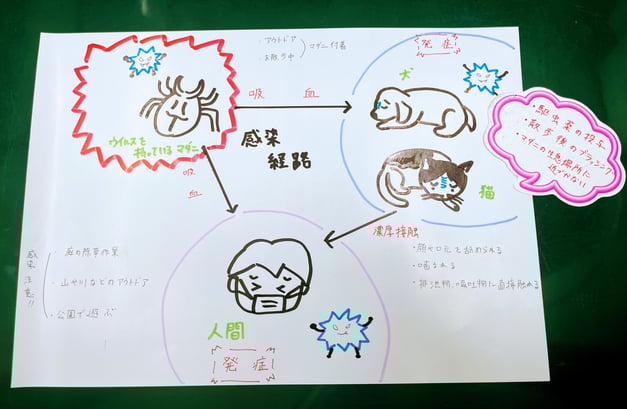 ・アウトドア
・お散歩中
マダニ付着
発症
犬
・駆虫薬の投与
・散歩後のブラッシング
・マダニの生息場所に
近づかない
ウイルスを
持っているマダニ
吸血
感染
経路
吸血
猫
濃厚接触
・顔や口元を舐められる
・噛まれる
・排泄物、嘔吐物に直接触れる
感染注意!!
・庭の除草作業
・山や川などのアウトドア
・公園で遊ぶ
人間
発症